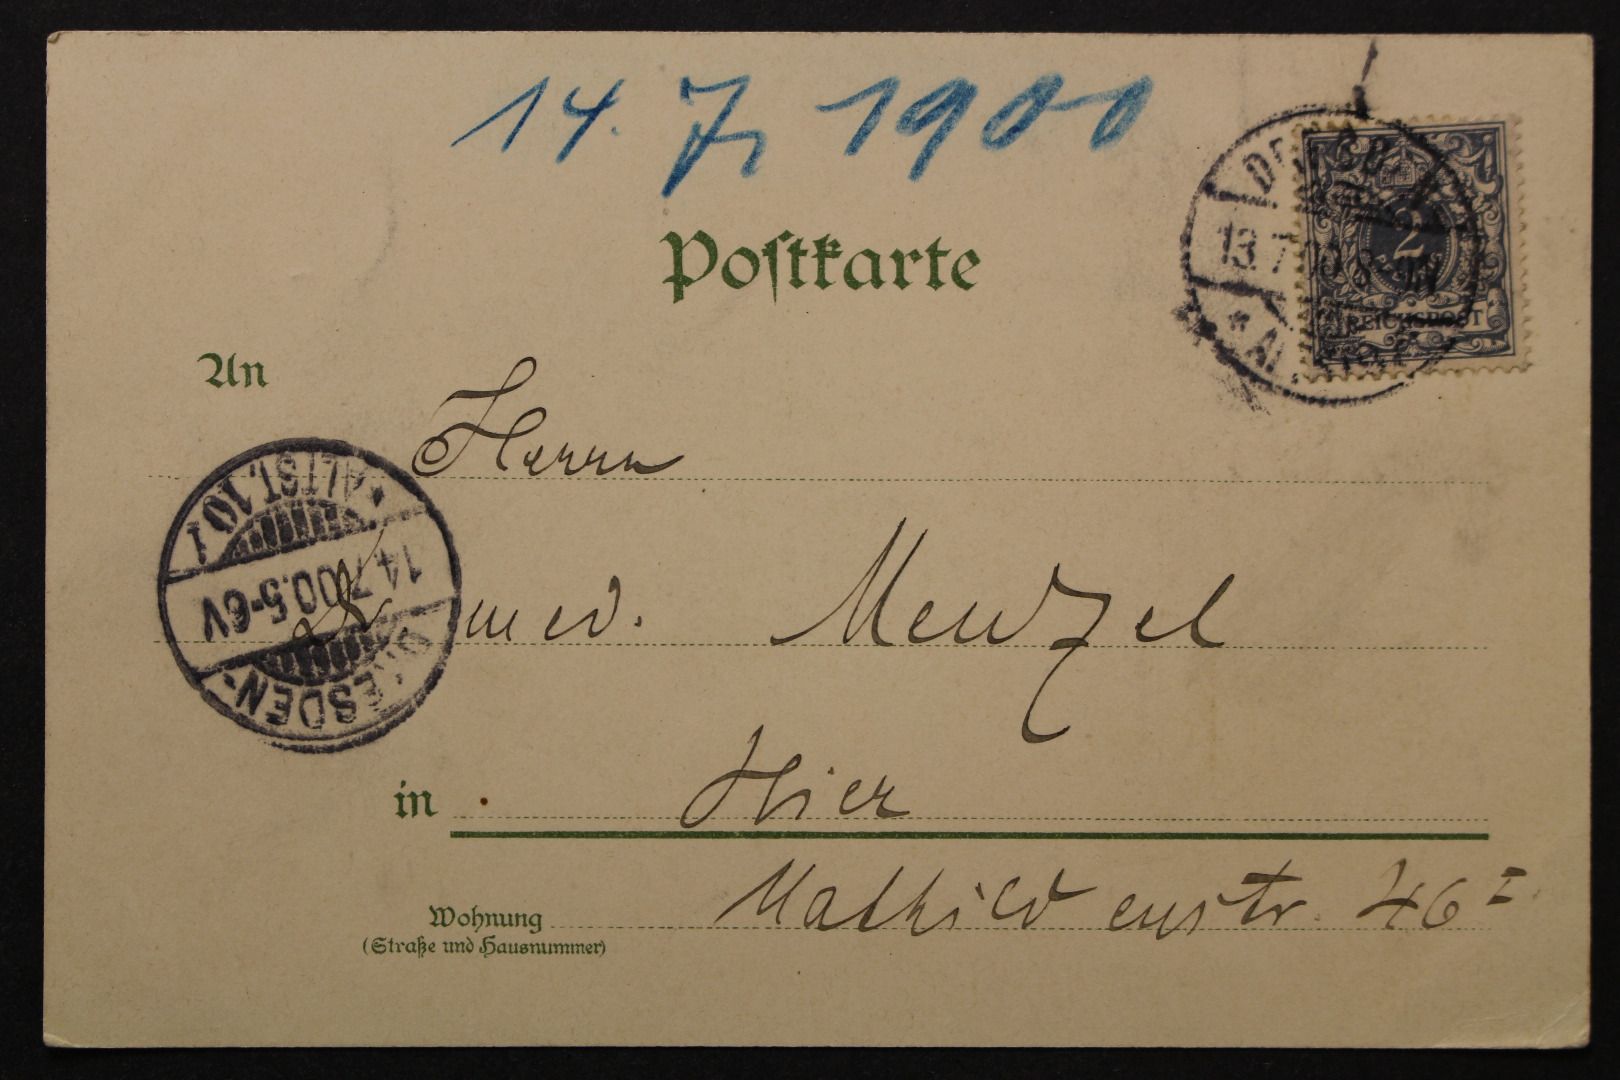 14. 7. 1900
Postkarte
13.7.00. 8-
2
REICHSPOST
An
Herrn
ALTST. 10 i
14.7.00.5-6V
DRESDEN-
Dr med. Menzel
in Hier
Wohnung Mathildenstr. 46 I
(Straße und Hausnummer)